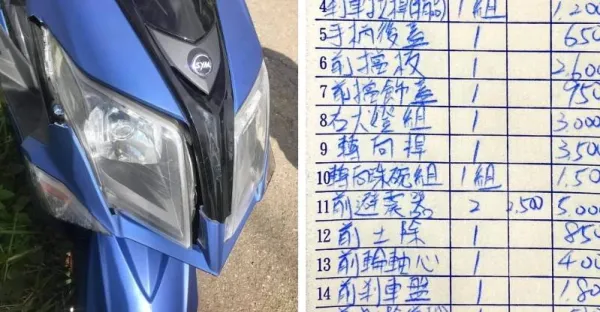 SYM
4 剎車拉桿 1組 1.200
5 手柄後蓋 1 650
6 前擋板 1 2.600
7 前擋飾蓋 1 950
8 右大燈組 1 3.000
9 轉向桿 1 3.500
10 轉向珠碗組 1組 1.50
11 前避震器 2 2.500 5.000
12 前土除 1 850
13 前輪軸心 1 400
14 前剎車盤 1 1.80